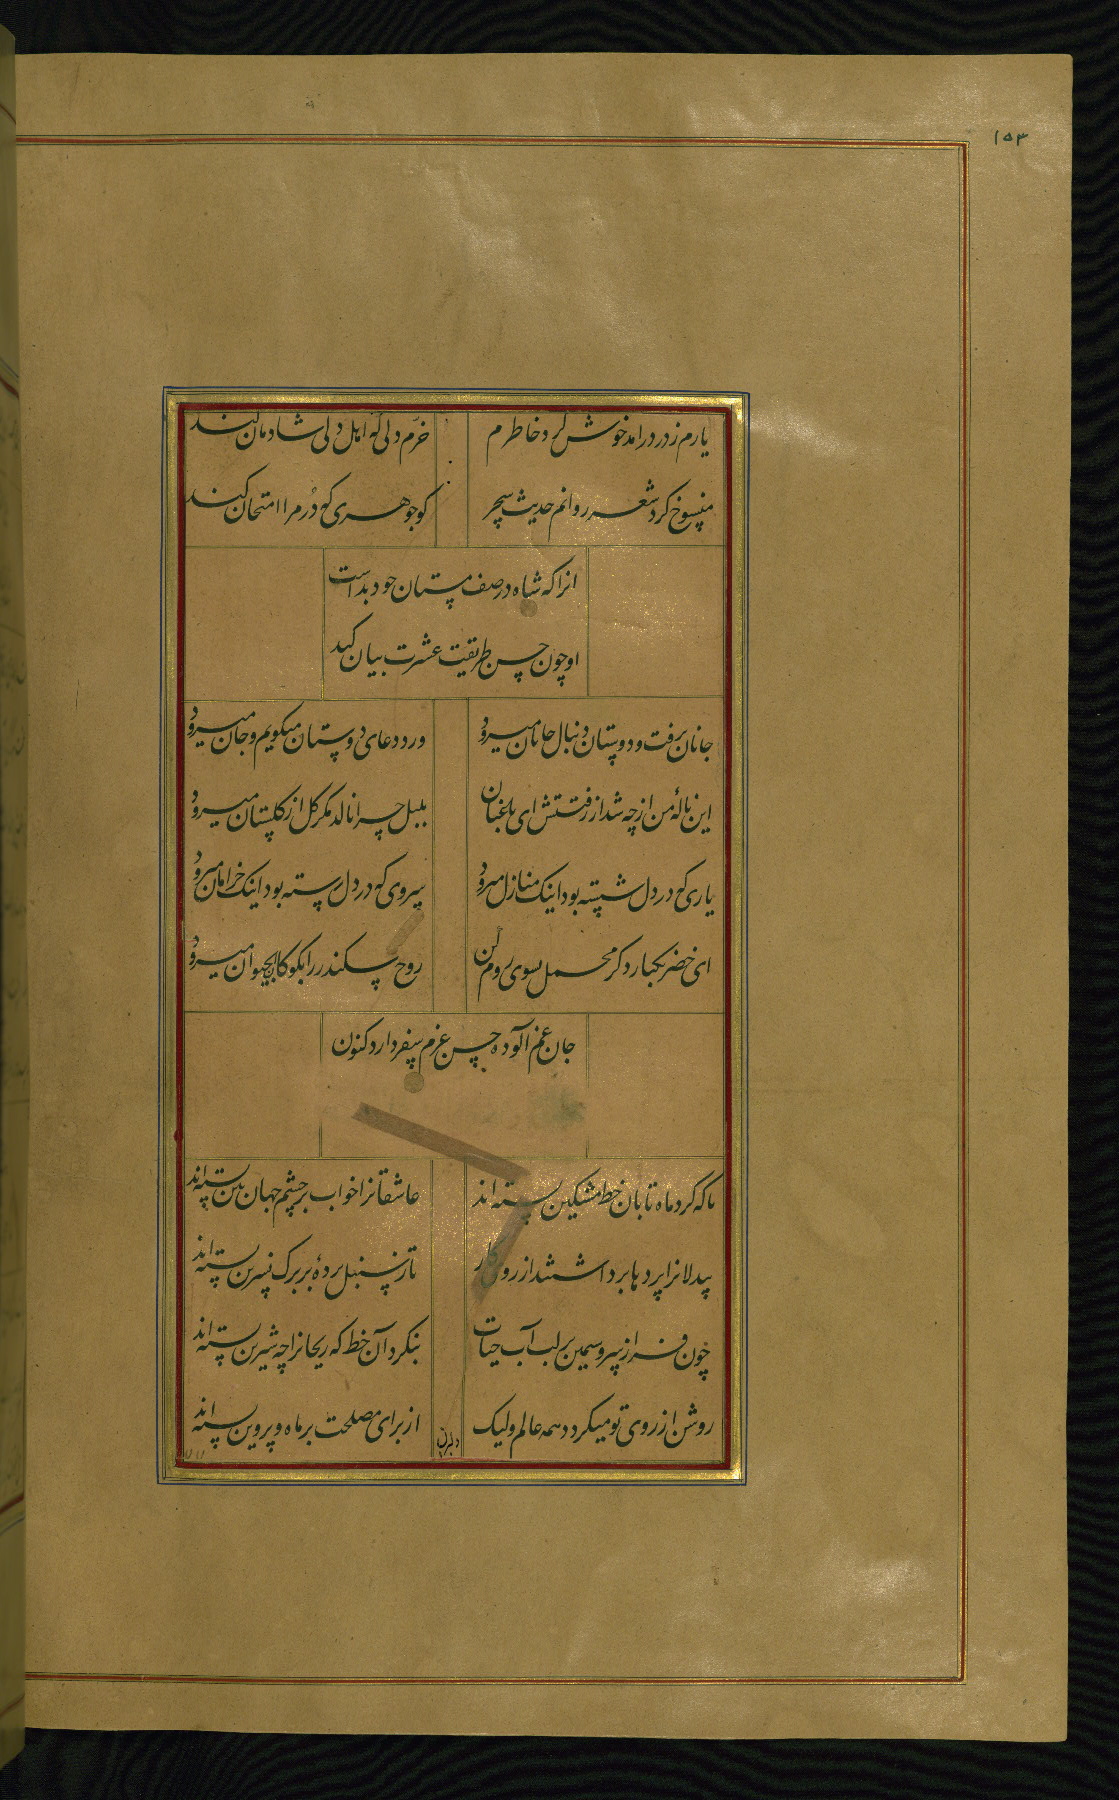 ۱۵۳
یارم ز در درامد خوش کرد خاطرم خرم دلی که اهل دلی شادمان کند
منسوخ کرد شعر روانم حدیث سحر کو جوهری که در مرا امتحان کند
انرا که شاه در صف مستان خود بداست
او چون حسن طریقت عشرت بیان کند
جانان برفت و دوستان دنبال جانان میرود ورد دعای دوستان میکویم و جان میرود
این نالهٔ من از چه شد از رفتنش ای باغبان بلبل چرا نالد مکر کل از کلستان میرود
یاری که در دل شسته بود اینک منازل میرود سروی که در دل رسته بود اینک خرامان میرود
ای خضر یکبار دکر محمل بسوی روم ران روح سکندر را بکو کاب حیوان میرود
جان غم آلوده حسن عزم سفر دارد کنون
تا که کرد ماه تابان خط مشکین بسته اند عاشقانرا خواب بر چشم جهان بین بسته اند
بیدلانرا پردها برداشتند از روی کار تا ز سنبل بردهٔ بر برک نسرین بسته اند
چون فراز سرو سیمین بر لب آب حیات بنکرد آن خط که ریحانرا چه شیرین بسته اند
روشن از روی تو میکردد همه عالم ولیک از برای مصلحت بر ماه و پروین بسته اند
دلبران